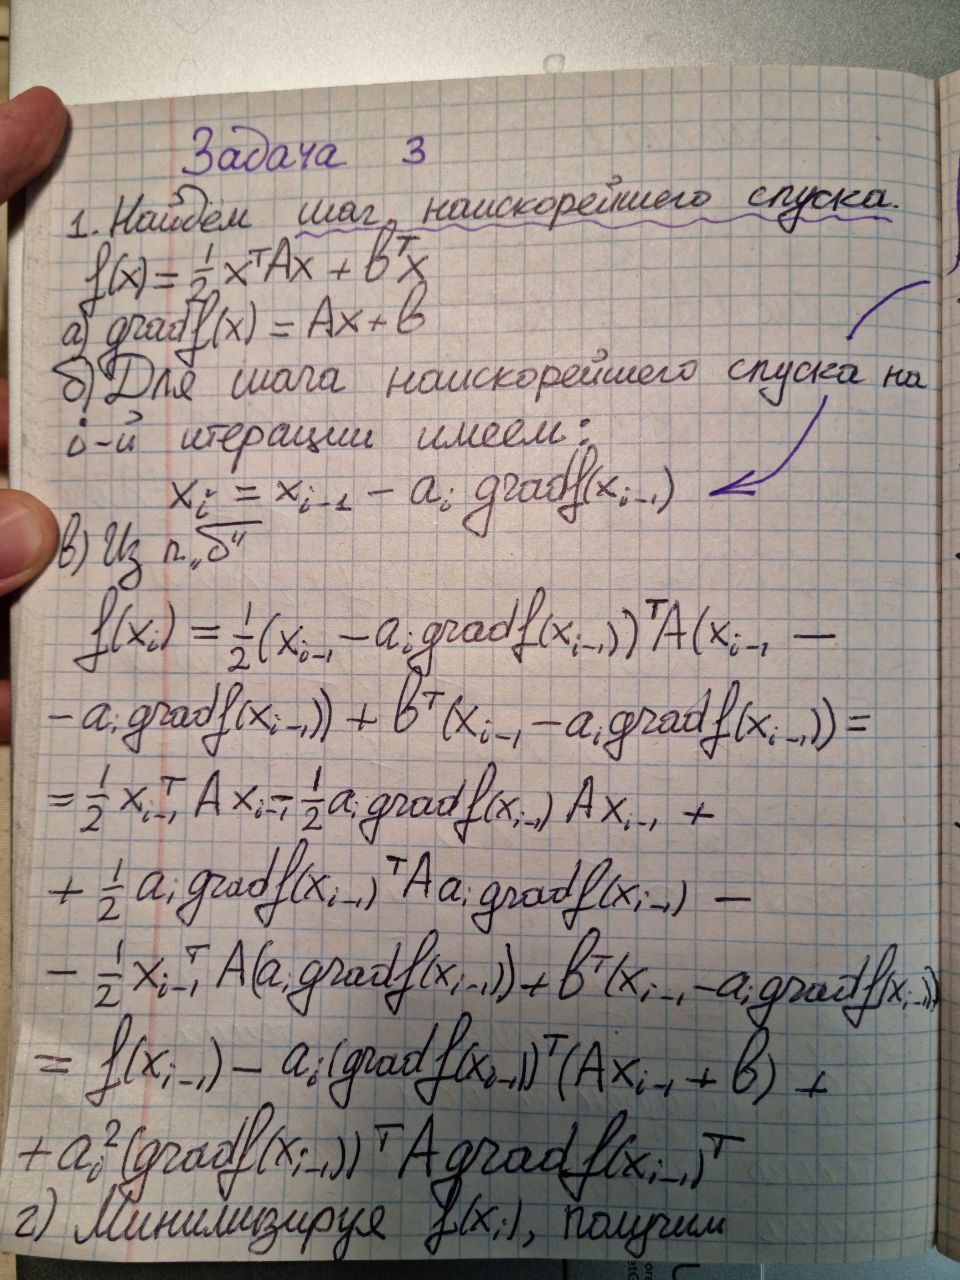 Задача 3
1. Найдём шаг наискорейшего спуска.
f(x) = 1/2 xᵀAx + bᵀx
а) gradf(x) = Ax + b
б) Для шага наискорейшего спуска на
i-й итерации имеем:
xᵢ = xᵢ₋₁ − aᵢ gradf(xᵢ₋₁)
в) Из п. „б"
f(xᵢ) = 1/2 (xᵢ₋₁ − aᵢ gradf(xᵢ₋₁))ᵀA(xᵢ₋₁ −
− aᵢ gradf(xᵢ₋₁)) + bᵀ(xᵢ₋₁ − aᵢ gradf(xᵢ₋₁)) =
= 1/2 xᵢ₋₁ᵀ Axᵢ₋₁ − 1/2 aᵢ gradf(xᵢ₋₁) Axᵢ₋₁ +
+ 1/2 aᵢ gradf(xᵢ₋₁)ᵀ A aᵢ gradf(xᵢ₋₁) −
− 1/2 xᵢ₋₁ᵀ A(aᵢ gradf(xᵢ₋₁)) + bᵀ(xᵢ₋₁ − aᵢ gradf(xᵢ₋₁))
= f(xᵢ₋₁) − aᵢ (gradf(xᵢ₋₁))ᵀ(Axᵢ₋₁ + b) +
+ aᵢ² (gradf(xᵢ₋₁))ᵀ A gradf(xᵢ₋₁)ᵀ
г) Минимизируя f(xᵢ), получим